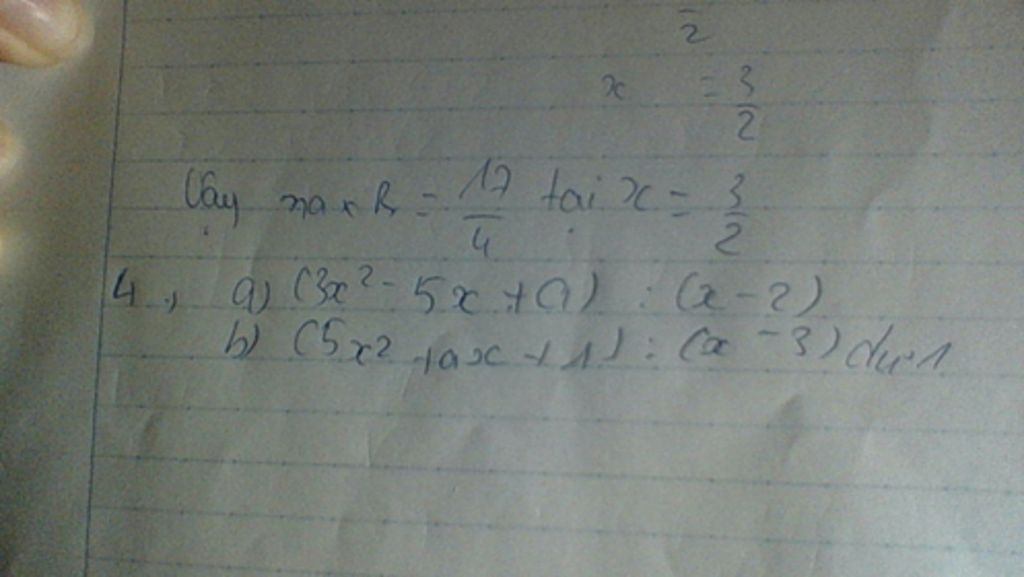 2
x = 3/2
Vậy max B = 17/4 tại x = 3/2
4, a) (3x² - 5x + a) : (x - 2)
b) (5x² + ax + 1) : (x - 3) dư 1